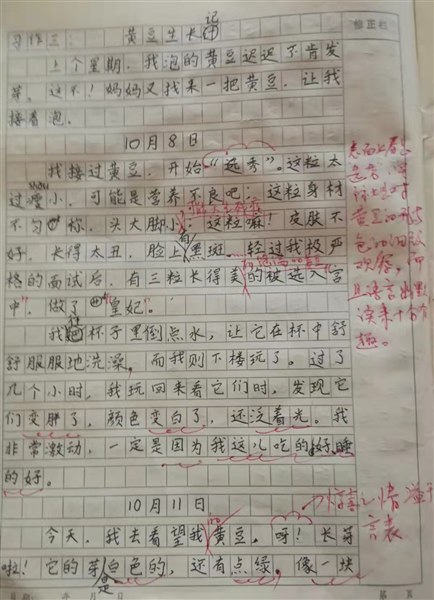 习作三： 黄豆生长记
上个星期，我泡的黄豆迟迟不肯发
芽，这不！妈妈又找来一把黄豆，让我
接着泡。
10月8日
我接过黄豆，开始“选秀”。这粒太
过小，可能是营养不良吧；这粒身材
不匀称，头大脚小；这粒嘛！皮肤不
好，长得太丑，脸上有黑斑。经过我极严
格的面试后，有三粒长得美的被选入宫
中，做了“皇妃”。
我杯子里倒点水，让它在杯中舒
舒服服地洗澡，而我则下楼玩了。过了
几个小时，我玩回来看它们时，发现它
们变胖了，颜色变白了，还泛着光。我
非常激动，一定是因为我这儿吃的好，睡
的好。
10月11日
今天，我去看望我黄豆。呀！长芽
啦！它的芽是白色的，还有点绿。像一块
修正栏
惊喜之情溢于
言表